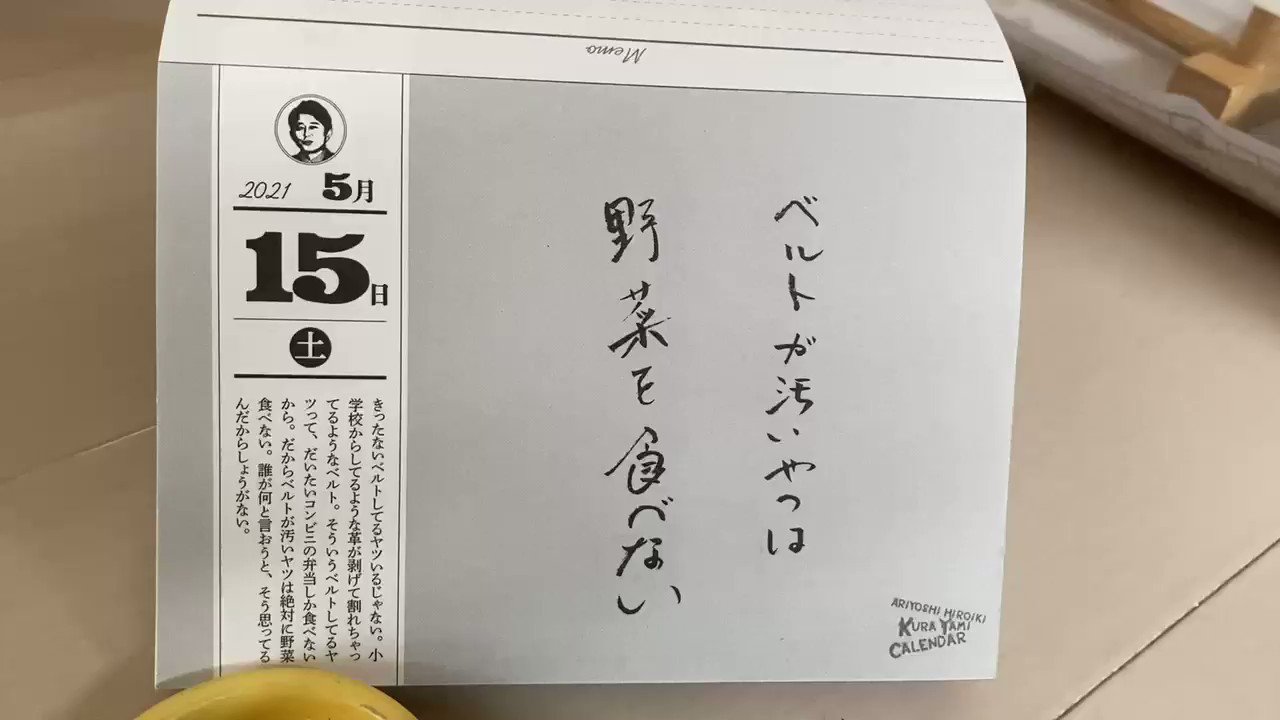 Memo
2021 5月
15日
土
ベルトが汚いやつは
野菜を食べない
きったないベルトしてるヤツいるじゃない。小
学校からしてるような革が剥げて割れちゃっ
てるようなベルト。そういうベルトしてるヤ
ツって、だいたいコンビニの弁当しか食べない
から。だからベルトが汚いヤツは絶対に野菜
食べない。誰が何と言おうと、そう思ってる
んだからしょうがない。
ARIYOSHI HIROIKI
KURA YAMI
CALENDAR